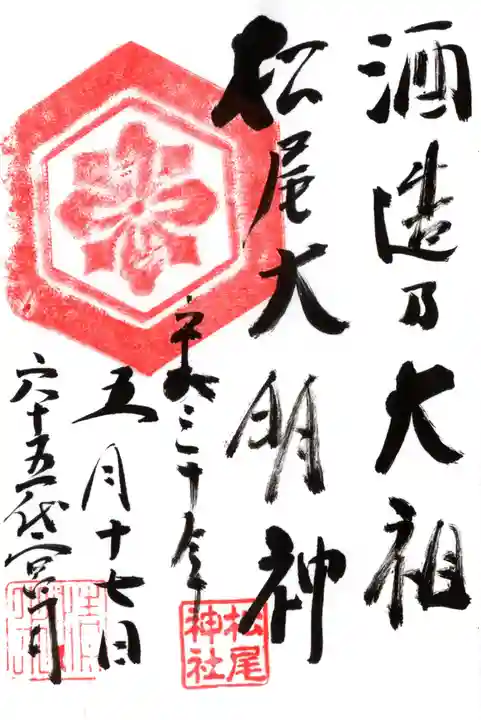 酒造乃大祖
松尾大明神
平成三十年
五月十七日
六十五代宮司
松尾
神社